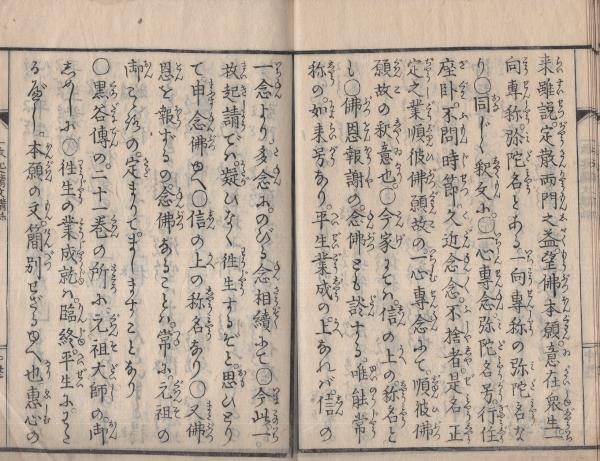 来雖説定散両門之益望佛本願意在衆生一
向専称弥陀名とある一向専称の弥陀名な
り〇同じく釈文に〇一心専念弥陀名号行住
座卧不問時節久近念念不捨者是名正
定之業順彼佛願故の一心専念にて順彼佛
願故の釈意也〇今家にては信の上の称名と
も〇佛恩報謝の念佛とも談ずる唯能常
称の如来号あり平生業成の上なれば信の
一念より多念にのびる念相續にて〇今此一
枚起請では疑ひなく徃生するぞと思ひとり
て申念佛ゆへ〇信の上の称名なり〇又佛
恩を報ずるの念佛あることは常に元祖の
御こゝろの定まりてましますことなり
〇黒谷傳の二十一巻の所に元祖大師の御
〇徃生の業成就は臨終平生に
る
本願の文簡別せざるゆへ也惠心の